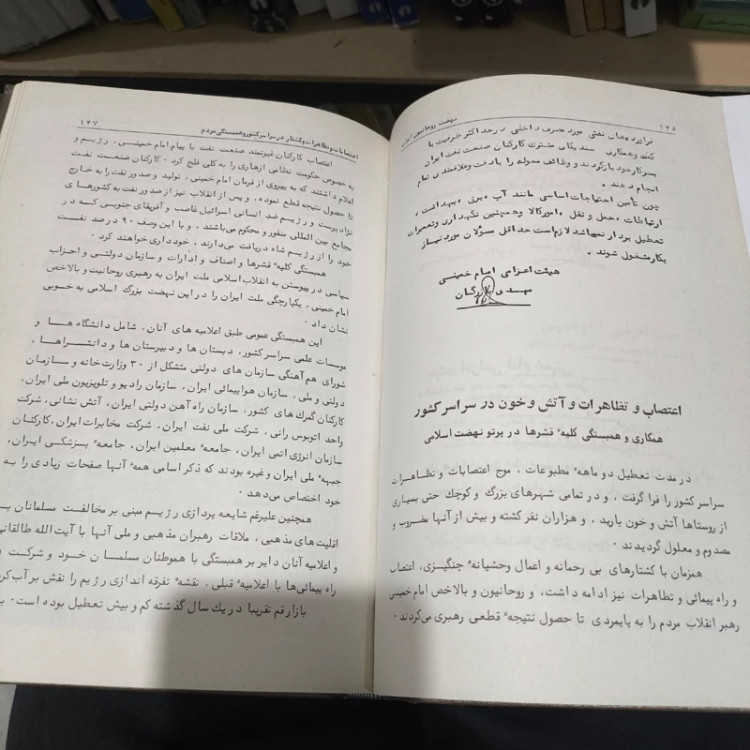 نهضت روحانیون ایران
۱۴۶
فرآورده‌های نفتی مورد مصرف داخلی در حداکثر ظرفیت با
کمک و همکاری سندیکای مشترک کارکنان صنعت نفت ایران
بسرکار خود بازگردند و وظائف محوله را با دقت و علاقمندی تمام
انجام دهند ۰
چون تأمین احتیاجات اساسی مانند آب ، برق ، بهداشت ،
ارتباطات ، حمل و نقل ، امور کالا و همچنین نگهداری و تعمیرات
تعطیل بردار نمیباشد لازم است حداقل مسؤلان مورد نیاز
بکار مشغول شوند ۰
هیئت اعزامی امام خمینی
مهدی بازرگان
اعتصاب و تظاهرات و آتش و خون در سراسر کشور
همکاری و همبستگی کلیهٔ قشرها در پرتو نهضت اسلامی
در مدت تعطیل دو ماههٔ مطبوعات ، موج اعتصابات و تظاهرات
سراسر کشور را فرا گرفت ، و در تمامی شهرهای بزرگ و کوچک حتی بسیاری
از روستاها آتش و خون بارید ، و هزاران نفر کشته و بیش از آنها مضروب و
مصدوم و معلول گردیدند ۰
همزمان با کشتارهای بی رحمانه و اعمال وحشیانهٔ چنگیزی، اعتصاب
و راه پیمائی و تظاهرات نیز ادامه داشت، و روحانیون و بالاخص امام خمینی
رهبر انقلاب مردم را به پایمردی تا حصول نتیجهٔ قطعی رهبری می‌کردند ۰
اعتصابات و تظاهرات و کشتار در سراسر کشور و همبستگی مردم
۱۴۷
اعتصاب کارکنان غیرتمند صنعت نفت با پیام امام خمینی، رژیم و
به خصوص حکومت نظامی ازهاری را به کلی فلج کرد ۰ کارکنان صنعت نفت
اعلام داشتند که به پیروی از فرمان امام خمینی، تولید و صدور نفت را به خارج
تا حصول نتیجه قطع نموده ، و پس از انقلاب نیز از صدور نفت به کشورهای
نژادپرست و رژیم ضد انسانی اسرائیل غاصب و آفریقای جنوبی که در
مجامع بین المللی منفور و محکوم میباشند ، و با این وصف ۹۰ درصد نفت
خود را از رژیم شاه دریافت می‌دارند ، خودداری خواهند کرد ۰
همبستگی کلیهٔ قشرها و اصناف و ادارات و سازمان دولتی و احزاب
سیاسی در پیوستن به انقلاب اسلامی ملت ایران به رهبری روحانیت و بالاخص
امام خمینی، یکپارچگی ملت ایران را در این نهضت بزرگ اسلامی به خوبی
نشان داد ۰
این همبستگی عمومی طبق اعلامیه های آنان، شامل دانشگاه ها و
موسسات علمی سراسر کشور، دبستان ها و دبیرستان ها و دانشسراها ،
شورای هم آهنگی سازمان های دولتی متشکل از ۳۰ وزارت خانه و سازمان
دولتی و ملی ، سازمان هواپیمائی ایران، سازمان رادیو و تلویزیون ملی ایران،
کارکنان گمرک های کشور، سازمان راه آهن دولتی ایران، آتش نشانی، شرکت
واحد اتوبوس رانی، شرکت ملی نفت ایران، شرکت مخابرات ایران، کارکنان
سازمان انرژی اتمی ایران ، جامعهٔ معلمین ایران، جامعهٔ پزشکی ایران،
جبههٔ ملی ایران و غیره بودند که ذکر اسامی همهٔ آنها صفحات زیادی را به
خود اختصاص می‌دهد ۰
همچنین علیرغم شایعه پردازی رژیم مبنی بر مخالفت مسلمانان با
اقلیت های مذهبی، ملاقات رهبران مذهبی و ملی آنها با آیت الله طالقانی
و اعلامیه آنان دایر بر همبستگی با هموطنان مسلمان خود و شرکت در
راه پیمائی‌ها با اعلامیهٔ قبلی، نقشهٔ تفرقه اندازی رژیم را نقش بر آب کرد
بازار قم تقریبا در یک سال گذشته کم و بیش تعطیل بوده است ۰